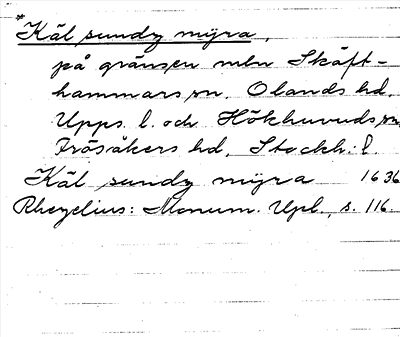 *Käl sundz mÿra,
på gränsen mln Skäft-
hammars sn, Olands hd,
Upps. l. och Hökhuvuds sn,
Frösåkers hd, Stockh:s l.
Käl sundz mÿra 1636
Rhezelius: Monum. Upl., s. 116.